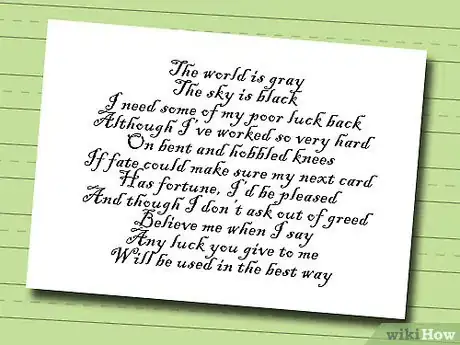 The world is gray
The sky is black
I need some of my poor luck back
Although I've worked so very hard
On bent and hobbled knees
If fate could make sure my next card
Has fortune, I'd be pleased
And though I don't ask out of greed
Believe me when I say
Any luck you give to me
Will be used in the best way
wikiHow